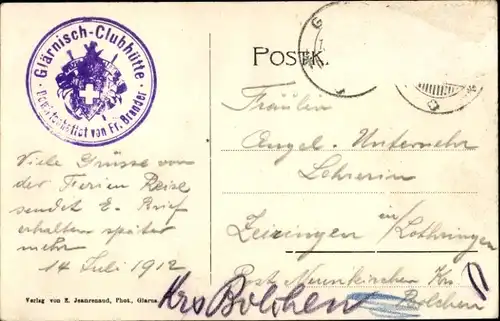 Glärnisch-Clubhütte
bewirtschaftet von Fr. Brander
POSTK.
Fräulein
Angel. Unternehr
Lehrerin
Zeiringen in/Lothringen
Post Neunkirchen Krs.
Bolchen
Krs Bolchen
Viele Grüsse von
der Ferien Reise
sendet E. Brief
erhalten später
mehr
14 Juli 1912
Verlag von E. Jeanrenaud, Phot., Glarus